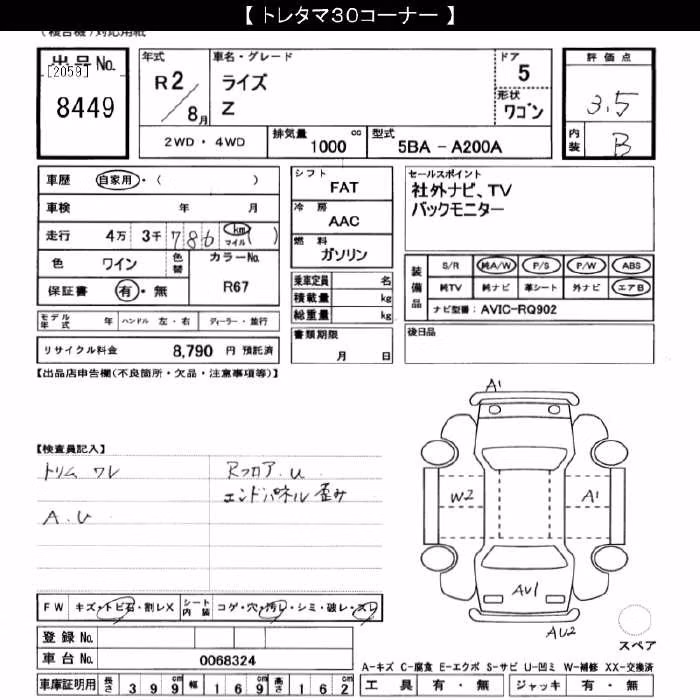 【 トレタマ３０コーナー 】
（複合機）対応用紙
出品No.
[2059]
8449
年式
R2
8月
車名・グレード
ライズ
Z
ドア
5
形状
ワゴン
評価点
3.5
内装
B
2WD・4WD
排気量 1000 cc
型式 5BA - A200A
車歴 自家用・( )
車検 年 月
走行 4万 3千 7 8 6 km マイル ( )
色 ワイン 色替
カラーNo.
R67
保証書 有・無
シフト
FAT
冷房
AAC
燃料
ガソリン
乗車定員 名
積載量 kg
総重量 kg
書類期限
月 日
セールスポイント
社外ナビ、TV
バックモニター
装備品
S/R 純A/W P/S P/W ABS
純TV 純ナビ 革シート 外ナビ エアB
ナビ型番： AVIC-RQ902
後日品
モデル年式 年 ハンドル 左・右 ディーラー・並行
リサイクル料金 8,790 円 預託済
【出品店申告欄（不良箇所・欠品・注意事項等）】
【検査員記入】
トリム ワレ
A.U
Rフロア.U
エンドパネル歪み
A1
W2
A1
AU1
AU2
スペア
FW キズ・トビ石・割レX
シート内装 コゲ・穴・汚レ・シミ・破レ・スレ
登録No.
車台No. 0068324
車庫証明用 長さ 399cm 幅 169cm 高さ 162cm
A-キズ C-腐食 E-エクボ S-サビ U-凹ミ W-補修 XX-交換済
工具 有・無 ジャッキ 有・無